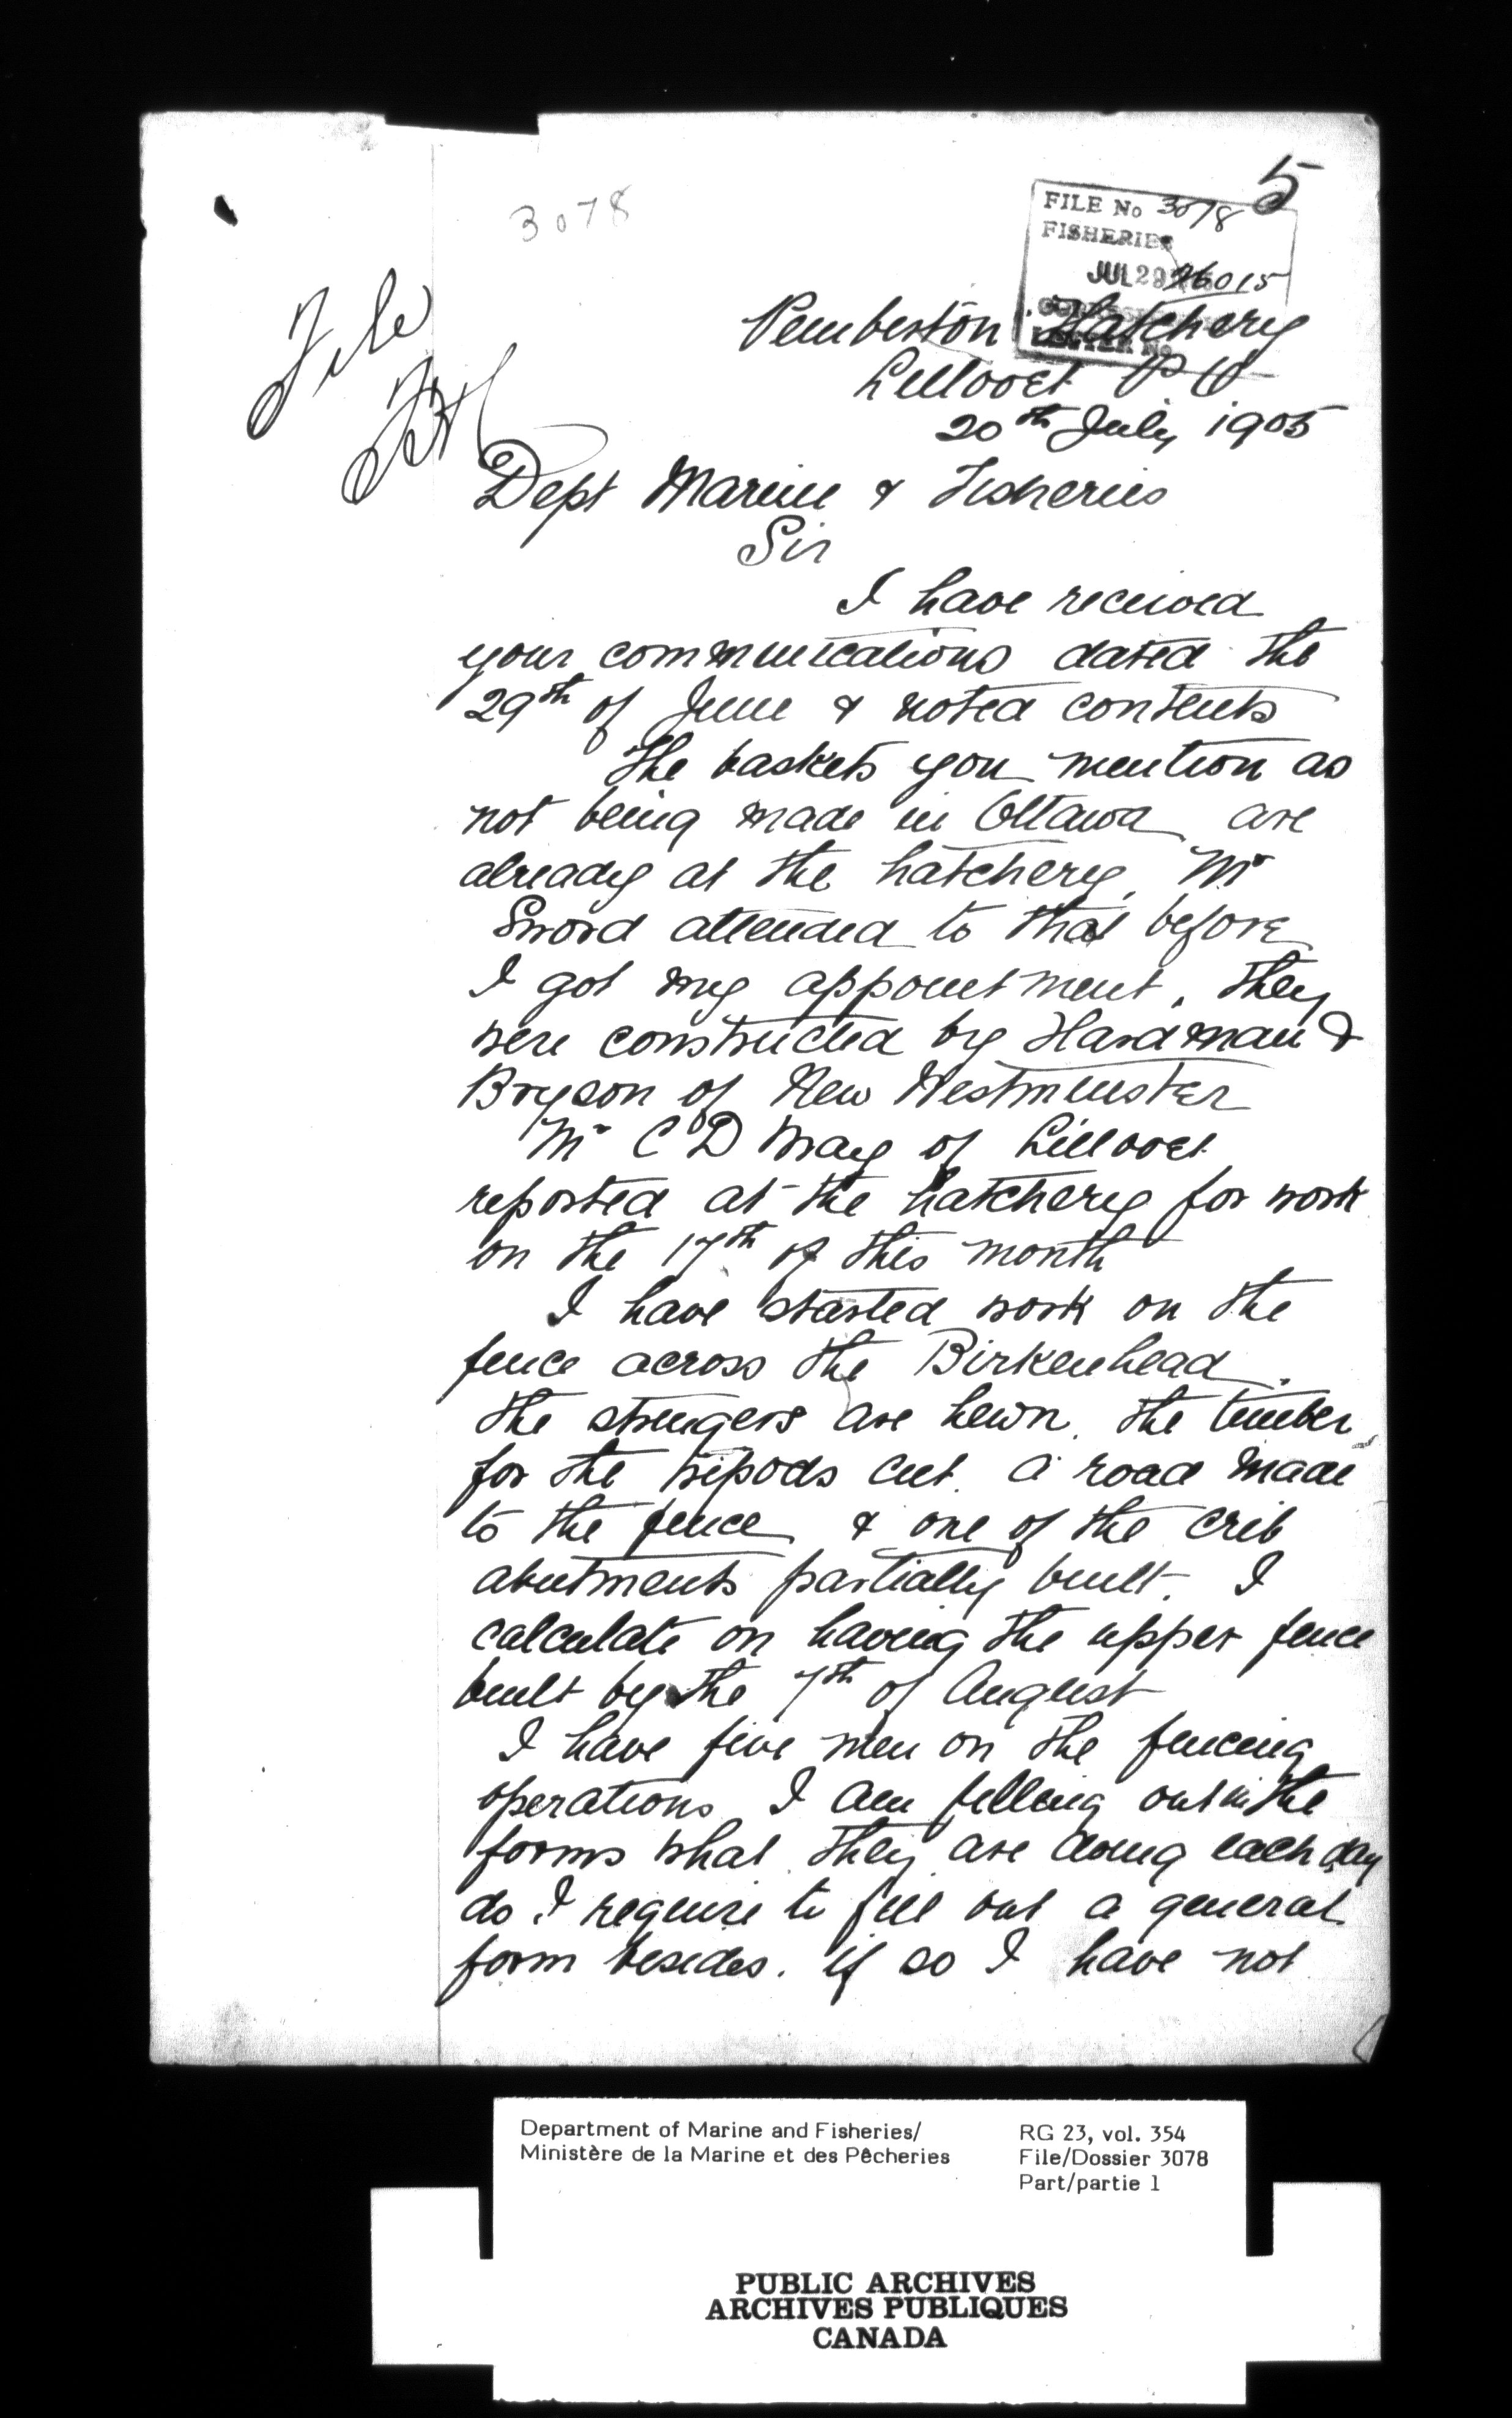 5
3078
FILE No 3078
FISHERIES
JUL 29
26015
LETTER No
File
Pemberton Hatchery
Lillooet P O
20th July 1905
Dept Marine & Fisheries
Sir
I have received
your communications dated the
29th of June & noted contents
The baskets you mention as
not being made in Ottawa are
already at the hatchery, Mr
Sword attended to that before
I got my appointment, they
were constructed by Hardman &
Bryson of New Westminster
Mr C D Bray of Lillooet
reported at the hatchery for work
on the 17th of this month
I have started work on the
fence across the Birkenhead.
the stringers are hewn. the timber
for the tripods cut. a road made
to the fence & one of the crib
abutments partially built. I
calculate on having the upper fence
built by the 7th of August
I have five men on the fencing
operations I am filling out in the
forms what they are doing each day
do I require to fill out a general
form besides. if so I have not
Department of Marine and Fisheries/
Ministère de la Marine et des Pêcheries
RG 23, vol. 354
File/Dossier 3078
Part/partie 1
PUBLIC ARCHIVES
ARCHIVES PUBLIQUES
CANADA